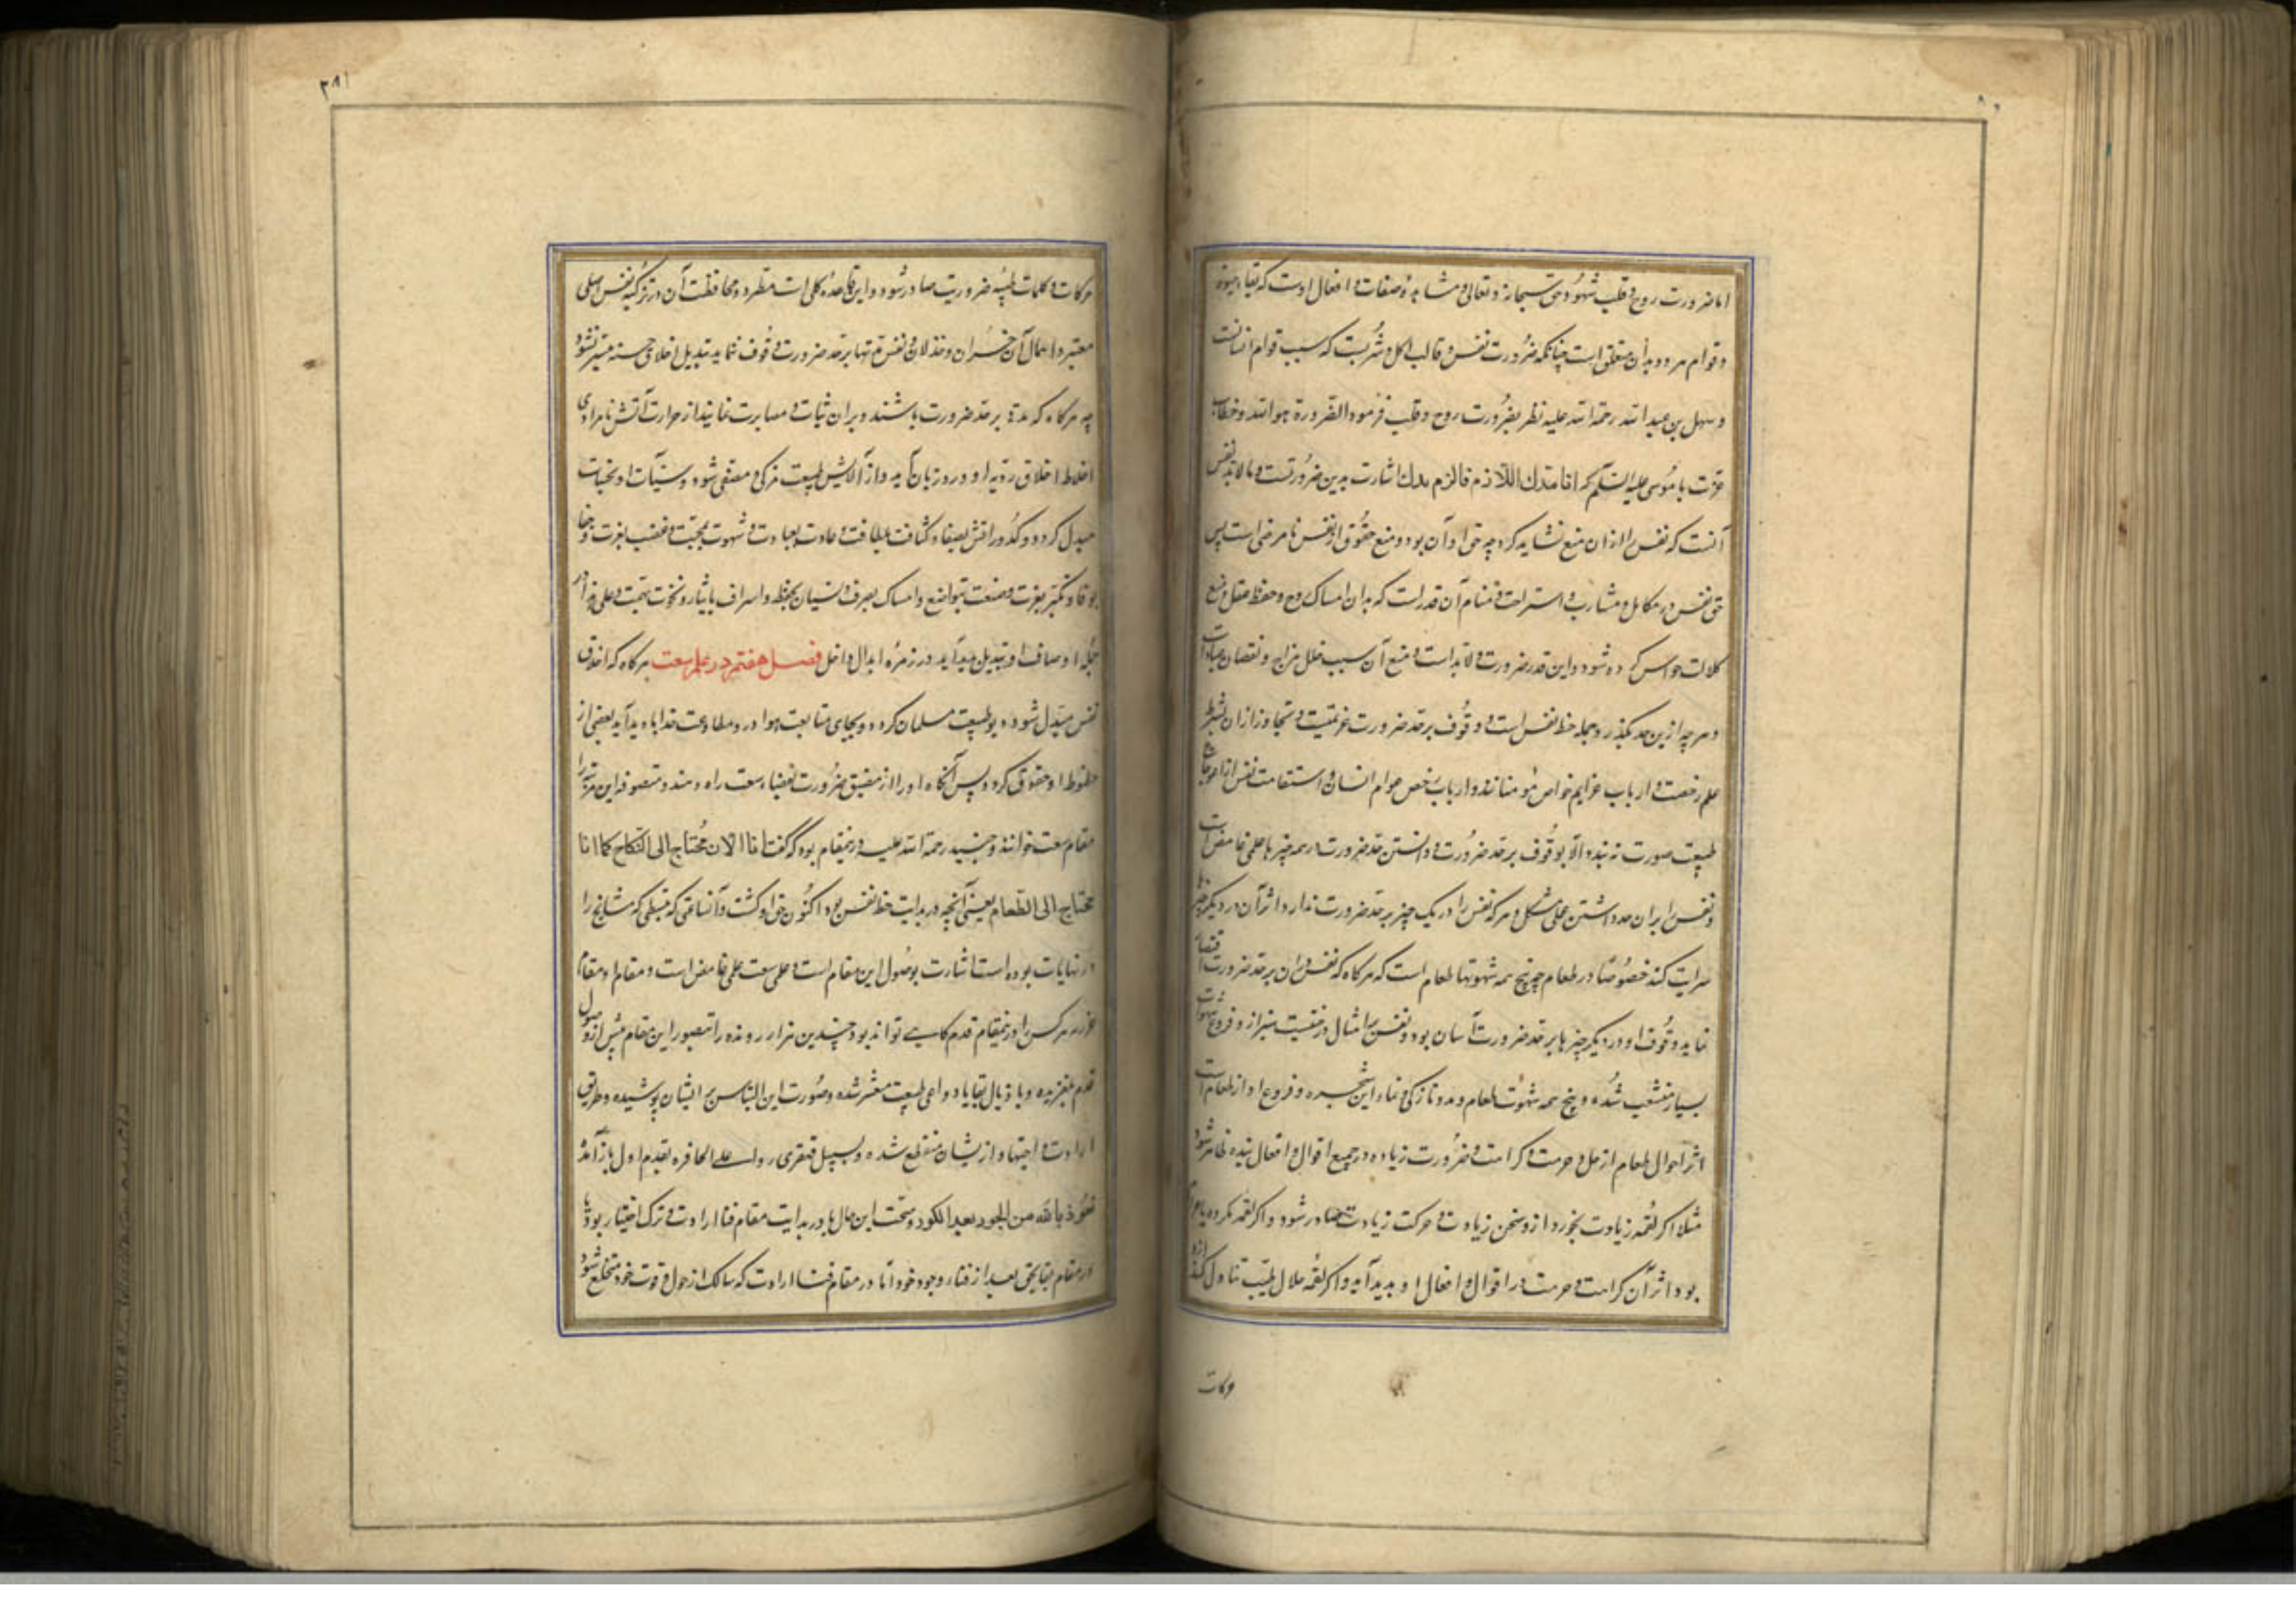 اما ضرورت روح و قلب شهود حق سبحانه و تعالی و مشاهدهٔ صفات و افعال اوست که بقا و حیوة
و قوام هر دو بدان متعلق است چنانکه ضرورت نفس و قالب اکل و شربست که سبب قوام انسانست
و سهل بن عبد الله رحمة الله علیه نظر بضرورت روح و قلب فرمود الضرورة هو الله و خطاب
عزت با موسی علیه السلم که انا بدك اللازم فالزم بدك اشارت بدین ضرورتست و ما لابد نفس
آنست که نفس را از ان منع نشاید کرد چه حق او آن بود و منع حقوق از نفس نا مرضی است پس
حق نفس در مکاکل و مشارب و استراحت و منام آن قدر است که بدان امساک روح و حفظ عقل و منع
کلالت حواس کرده شود و این قدر ضرورت و لابد است و منع آن سبب خلل مزاج و نقصان عبادات
و هر چه ازین حد بگذرد و جمله حظ نفس است و وقوف بر حد ضرورت عزیمتیست و تجاوز از ان بشرط
علم رخصت و ارباب عزایم خواص مؤمنانند و ارباب رخص عوام انسان و استقامت نفس از اعوجاج
طبیعت صورت نبندد الا بوقوف بر حد ضرورت و دانستن حد ضرورت در همه چیزها علمی غامض است
و نفس را بران حد داشتن عملی مشکل و هر که نفس را در یک چیز بر حد ضرورت ندارد اثر آن در دیگر چیزها
سرایت کند خصوصا در طعام چه بیخ همه شهوتها طعام است که هر گاه که نفس در ان بر حد ضرورت اقتصار
نماید وقوف او در دیگر چیزها بر حد ضرورت آسان بود و نفس را مثال درختیست متبر از و فروع شهوات
بسیار منشعب شده و بیخ همه شهوت طعام و مدد تازگی و نماء این شجره و فروع او از طعام است
اثر احوال طعام از حل و حرمت و کرامت و ضرورت زیاده در جمیع اقوال و افعال بنده ظاهر شود
مثلا اگر لقمه زیادت بخورد ازو سخن زیادت و حرکت زیادت صادر شود و اگر لقمه مکروه یا حرام
بود اثر آن کراهت و حرمت در اقوال و افعال او پدید آید و اگر لقمه حلال طیب تناول کند ازو
حرکات
۲۸۱
حرکات و کلمات طیبه ضروریت صادر شود و این قاعده کلی است مطرد و محافظت آن در تزکیه نفس اصلی
معتبر و اهمال آن خسران و خذلان و نفس تا بر حد ضرورت وقوف ننماید تبدیل اخلاق حسنه میسر نشود
چه هر گاه که مدتی بر حد ضرورت باشند و بران ثبات و مصابرت نمایند از حرارت آتش نامرادی
اخلاط اخلاق ردیه او در ذوبان آید و از آلایش طبیعت مزکی و مصفی شود و سیئات او بحسنات
مبدل گردد و کدوراتش بصفا و کثافت بلطافت و عادت بعبادت و شهوت بمحبت و غضب بغیرت و جفا
بوفا و تکبر بعزت و ضعت بتواضع و امساک بصرف و نسیان بحفظ و اسراف بایثار و نخوت بهمت و علی هذا در
جمله اوصاف او تبدیل پدید آید در زمره ابدال داخل فصل هفتم در علم سعت هر گاه که اخلاق
نفس مبدل شود دیو طبیعت مسلمان گردد و بجای متابعت هوا در و مطاوعت خدا با دید آید بعضی از
حظوظ او حقوق گردد پس آنگاه او را از مضیق ضرورت بفضاء سعت راه دهند و متصوفه این مرتبه را
مقام سعت خوانند و جنید رحمة الله علیه درین مقام بود که گفت انا الان محتاج الی النکاح کما انا
محتاج الی الطعام یعنی آنچه در بدایت حظ نفس بود اکنون حق او گشت و آن ساعتی که منبسطی که مشایخ را
در نهایات بوده است اشارت بوصول این مقام است و علم سعت علمی غامض است و مقام او مقام
عزیز هر کس را درین مقام قدم گاهی نتواند بود چندین هزار رونده را تصور این مقام پیش از وصول
قدم بلغزیده و با ذیال بقایا دواعی طبیعت متعثر شده و صورت این التباس بر ایشان پوشیده و طریق
ارادت و اجتهاد از یشان منقطع شده و بسبیل قهقری رد علی الحافره بقدم اول باز آمده
نعوذ بالله من الحور بعد الکور و صحت این حال ها در بدایت مقام فنا ارادت و ترک اختیار بود تا
در مقام بقا بحق بعد از فناء وجود خود اما در مقام فنا ارادت که سالک از حول و قوت خود منخلع شود